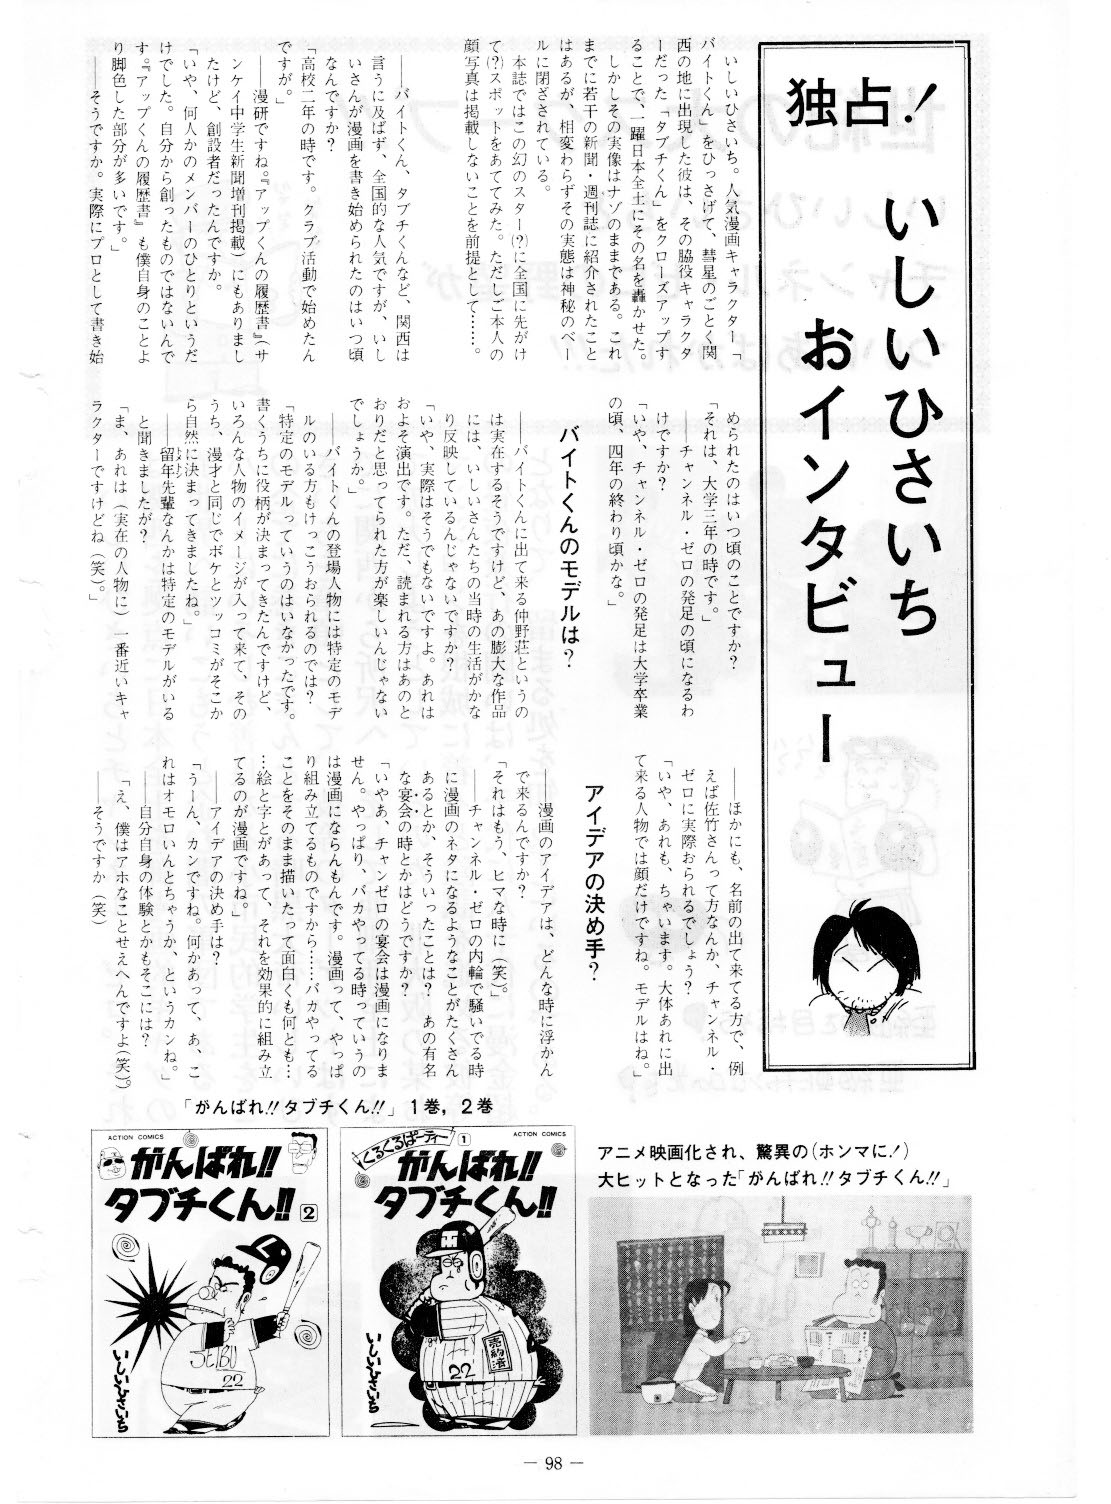 独占！
いしいひさいち
おインタビュー
いしいひさいち。人気漫画キャラクター「
バイトくん」をひっさげて、彗星のごとく関
西の地に出現した彼は、その脇役キャラクタ
ーだった「タブチくん」をクローズアップす
ることで、一躍日本全土にその名を轟かせた。
しかしその実像はナゾのままである。これ
までに若干の新聞・週刊誌に紹介されたこと
はあるが、相変わらずその実態は神秘のベー
ルに閉ざされている。
本誌ではこの幻のスター(?)に全国に先がけ
て(?)スポットをあててみた。ただしご本人の
顔写真は掲載しないことを前提として……。
――バイトくん、タブチくんなど、関西は
言うに及ばず、全国的な人気ですが、いし
いさんが漫画を書き始められたのはいつ頃
なんですか？
「高校二年の時です。クラブ活動で始めたん
ですが。」
――漫研ですね。『アップくんの履歴書』(サ
ンケイ中学生新聞増刊掲載)にもありまし
たけど、創設者だったんですか。
「いや、何人かのメンバーのひとりというだ
けでした。自分から創ったものではないんで
す。『アップくんの履歴書』も僕自身のことよ
り脚色した部分が多いです。」
――そうですか。実際にプロとして書き始
められたのはいつ頃のことですか？
「それは、大学三年の時です。」
――チャンネル・ゼロの発足の頃になるわ
けですか？
「いや、チャンネル・ゼロの発足は大学卒業
の頃、四年の終わり頃かな。」
バイトくんのモデルは？
――バイトくんに出て来る仲野荘というの
は実在するそうですけど、あの膨大な作品
には、いしいさんたちの当時の生活がかな
り反映しているんじゃないですか？
「いや、実際はそうでもないですよ。あれは
およそ演出です。ただ、読まれる方はあのと
おりだと思ってられた方が楽しいんじゃない
でしょうか。」
――バイトくんの登場人物には特定のモデ
ルのいる方もけっこうおられるのでは？
「特定のモデルっていうのはいなかったです。
書くうちに役柄が決まってきたんですけど、
いろんな人物のイメージが入って来て、その
うち、漫才と同じでボケとツッコミがそこか
ら自然に決まってきましたね。」
――留年先輩なんかは特定のモデルがいる
と聞きましたが？
「ま、あれは（実在の人物に）一番近いキャ
ラクターですけどね（笑）。」
――ほかにも、名前の出て来てる方で、例
えば佐竹さんって方なんか、チャンネル・
ゼロに実際おられるでしょう？
「いや、あれも、ちゃいます。大体あれに出
て来る人物では顔だけですね。モデルはね。」
アイデアの決め手？
――漫画のアイデアは、どんな時に浮かん
で来るんですか？
「それはもう、ヒマな時に（笑）。」
――チャンネル・ゼロの内輪で騒いでる時
に漫画のネタになるようなことがたくさん
あるとか、そういったことは？　あの有名
な宴会の時とかはどうですか？
「いやあ、チャンゼロの宴会は漫画になりま
せん。やっぱり、バカやってる時っていうの
は漫画にならんもんです。漫画って、やっぱ
り組み立てるものですから……バカやってる
ことをそのまま描いたって面白くも何とも…
…絵と字とがあって、それを効果的に組み立
てるのが漫画ですね。」
――アイデアの決め手は？
「うーん、カンですね。何かあって、あ、こ
れはオモロいんとちゃうか、というカンね。」
――自分自身の体験とかもそこには？
「え、僕はアホなことせえへんですよ(笑)。」
――そうですか（笑）
「がんばれ!!タブチくん!!」１巻，２巻
ACTION COMICS
がんばれ!!
タブチくん!!
2
SEIBU
22
いしいひさいち
くるくるぱーティー
1
ACTION COMICS
がんばれ!!
タブチくん!!
売約済
22
いしいひさいち
アニメ映画化され、驚異の(ホンマに！)
大ヒットとなった「がんばれ!!タブチくん!!」
― 98 ―